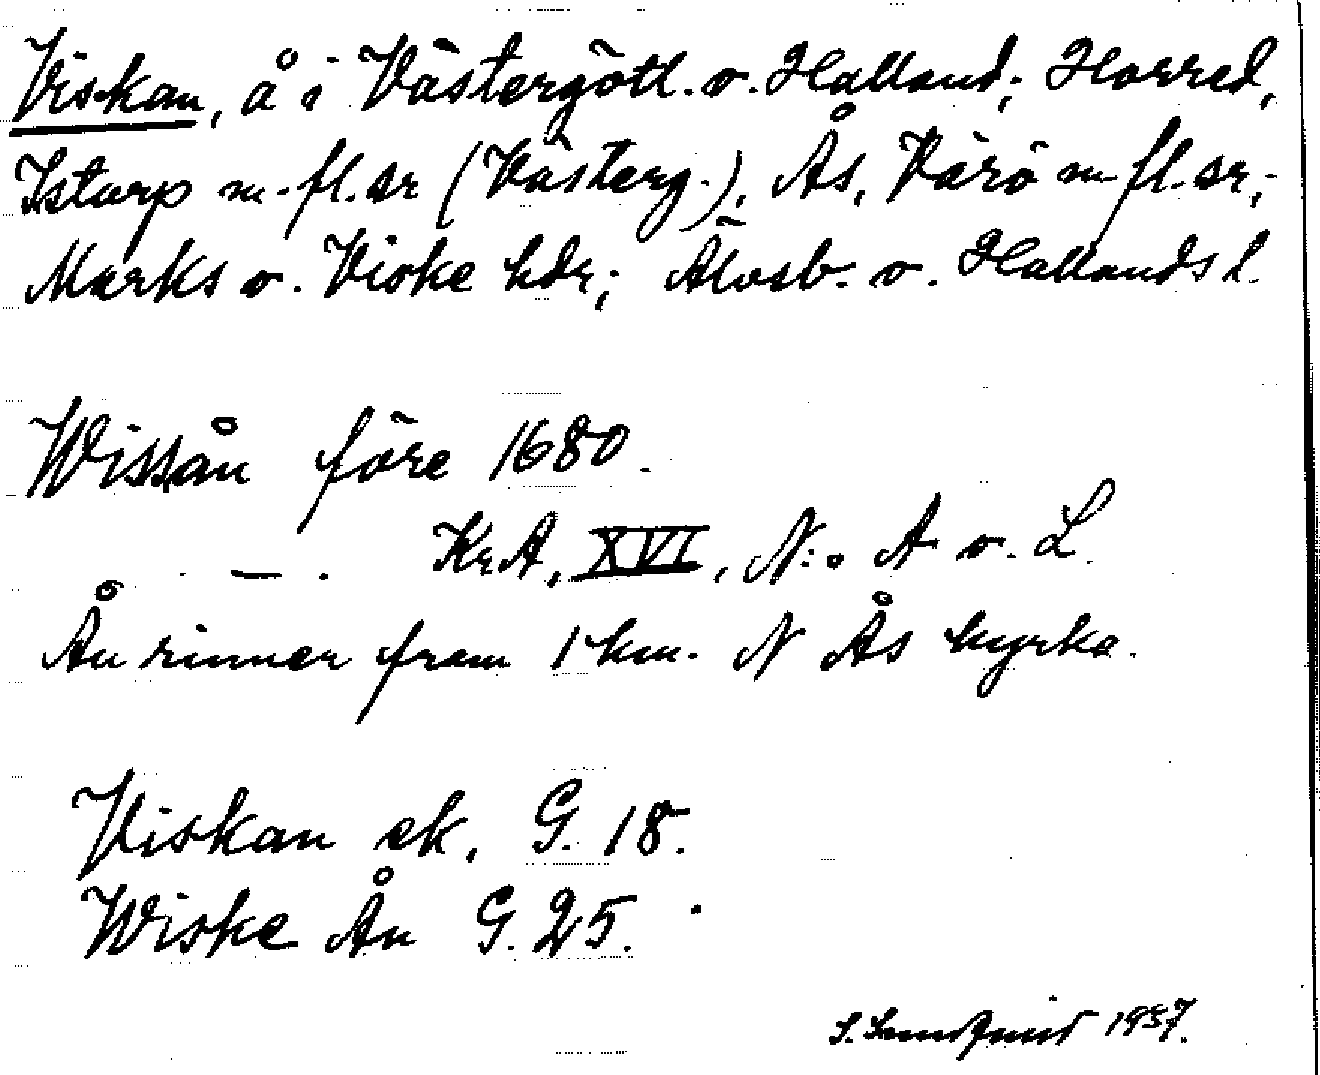 Viskan, å i Västergötl. o. Halland; Horred,
Istorp m. fl. sr (Västerg.), Ås, Värö m fl. sr,
Marks o. Viske hdr; Älvsb. o. Hallands l.
Wissån före 1680.
— . KrA, XVI, N:o A o. L.
Ån rinner fram 1 km. N Ås kyrka.
Viskan ek. G. 18.
Wiske Ån G. 25.
S. 1937.